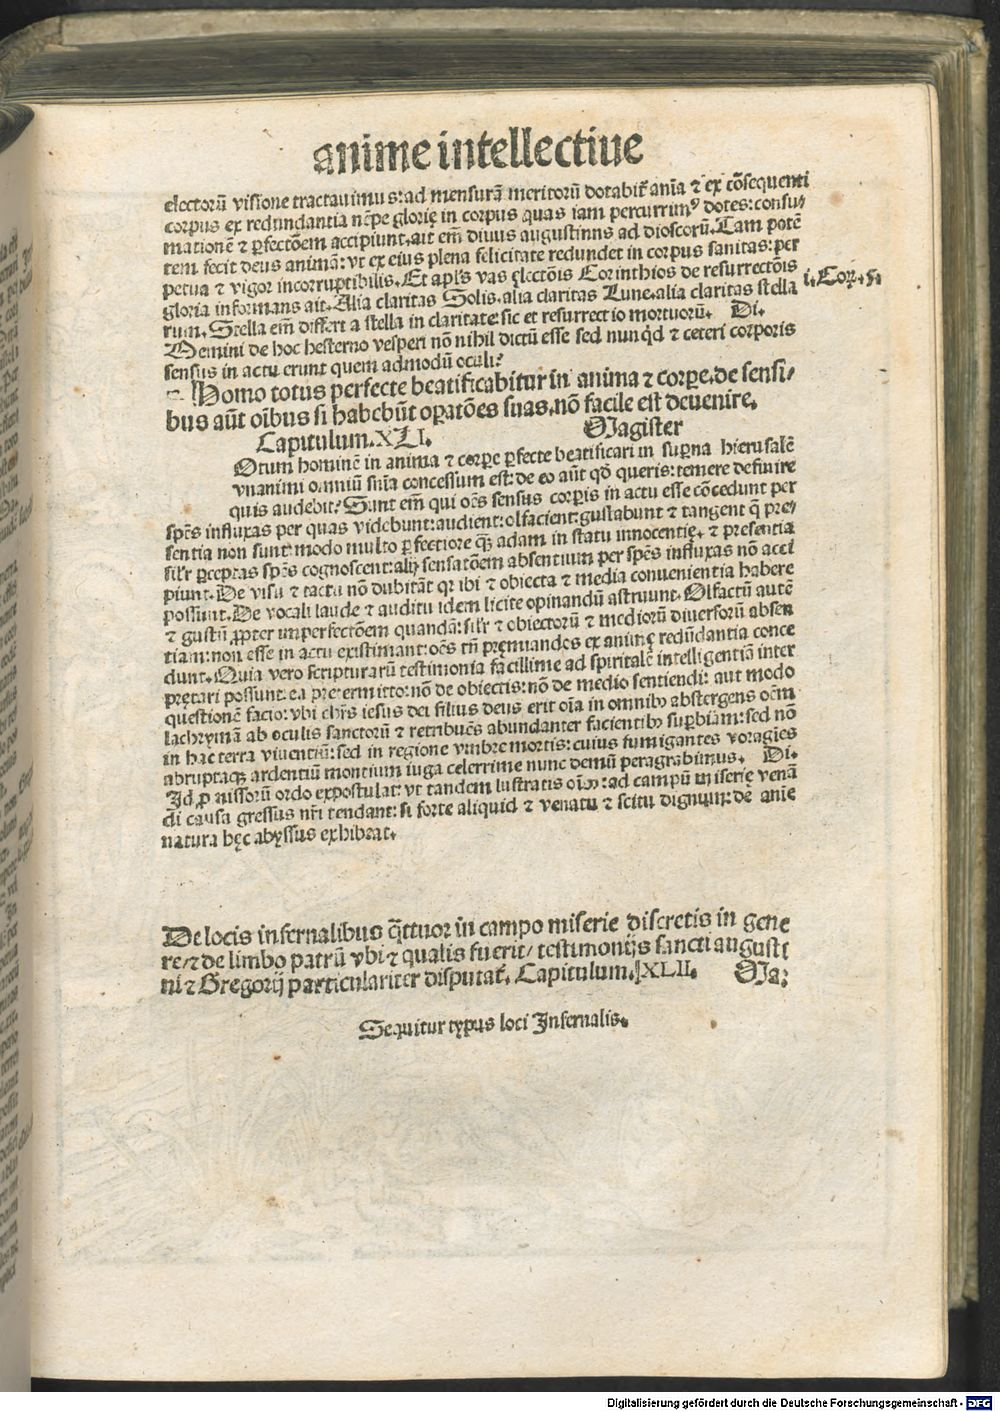 anime intellectiue
electorū visione tractauimus: ad mensurā meritorū dotabit᷑ aīa ⁊ ex cōsequenti
corpus ex redundantia nēpe glorię in corpus quas iam percurrimꝰ dotes: consu⸗
mationē ⁊ ꝑfectōem accipiunt. ait em̄ diuus augustinns ad dioscorū. Tam potē
tem fecit deus animā: vt ex eius plena felicitate redundet in corpus sanitas: per
petua ⁊ vigor incorruptibilis. Et apl̄s vas ęlectōis Corinthios de resurrectōis i. Cor. 15.
gloria informans ait. Alia claritas Solis. alia claritas Lune. alia claritas stella
rum. Stella em̄ differt a stella in claritate: sic et resurrectio mortuorū. Di.
Gemini de hoc hesterno vesperi nō nihil dictū esse sed nunq̄d ⁊ ceteri corporis
sensus in actu erunt quem admodū oculi?
Homo totus perfecte beatificabitur in anima ⁊ corꝑe. de sensi⸗
bus aūt oībus si habebūt oꝑatōes suas. nō facile est deuenire.
Capitulum. XLI. Magister
Otum hominē in anima ⁊ corꝑe ꝑfecte beatificari in suꝑna hierusalē
vnanimi omniū sn̄ia concessum est: de eo aūt qd̄ queris: temere definire
quis audebit? Sunt em̄ qui oēs sensus corꝑis in actu esse cōcedunt per
sp̄es influxas per quas videbunt: audient: olfacient: gustabunt ⁊ tangent q̄ pre⸗
sentia non sunt: modo multo ꝑfectiore qꝫ adam in statu innocentię. ⁊ presentia
sil'r ꝑceptas sp̄es cognoscent: alij sensatōem absentium per sp̄es influxas nō acci
piunt. De visu ⁊ tactu nō dubitāt qr ibi ⁊ obiecta ⁊ media conuenientia habere
possunt. De vocali laude ⁊ auditu idem licite opinandū astruunt. Olfactū autē
⁊ gustū ꝓpter imperfectōem quandā: sil'r ⁊ obiectorū ⁊ mediorū diuersorū absen
tiam: non esse in actu existimant: oēs tn̄ pręmiandos ex animę redūdantia conce
dunt. Quia vero scripturarū testimonia facillime ad spiritalē intelligentiā inter
pretari possunt: ea pretermitto: nō de obiectis: nō de medio sentiendi: aut modo
questionē facio: vbi chr̄s iesus dei filius deus erit oīa in omnibꝰ abstergens oēm
lachrymā ab oculis sanctorū ⁊ retribuēs abundanter facientibꝰ suꝑbiam: sed nō
in hac terra viuentiū: sed in regione vmbre mortis: cuius fumigantes voragīes
abruptaqꝫ ardentiū montium iuga celerrime nunc demū peragrabimus. Di.
Id ꝓmissorū ordo expostulat: vt tandem lustratis oībꝰ: ad campū miserię venā
di causa gressus nr̄i tendant: si forte aliquid ⁊ venatu ⁊ scitu dignum: de anie
natura hęc abyssus exhibeat.
De locis infernalibus q̄ttuor in campo miserie discretis in gene
re/ ⁊ de limbo patrū vbi ⁊ qualis fuerit/ testimonijs sancti augusti
ni ⁊ Gregorij particulariter disputat᷑. Capitulum. XLII. Ma:
Sequitur typus loci Infernalis.
Digitalisierung gefördert durch die Deutsche Forschungsgemeinschaft - DFG